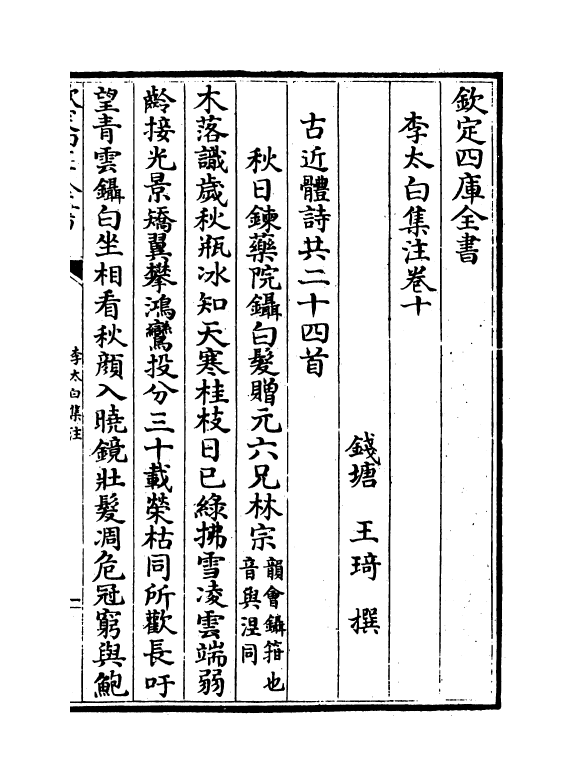 欽定四庫全書
李太白集注卷十
錢塘 王琦 撰
古近體詩共二十四首
秋日鍊藥院鑷白髮贈元六兄林宗韻會鑷箝也
音與湼同
木落識歲秋瓶冰知天寒桂枝日已綠拂雪凌雲端弱
齡接光景矯翼攀鴻鸞投分三十載榮枯同所歡長吁
望青雲鑷白坐相看秋顏入曉鏡壯髮凋危冠窮與鮑
李太白集注